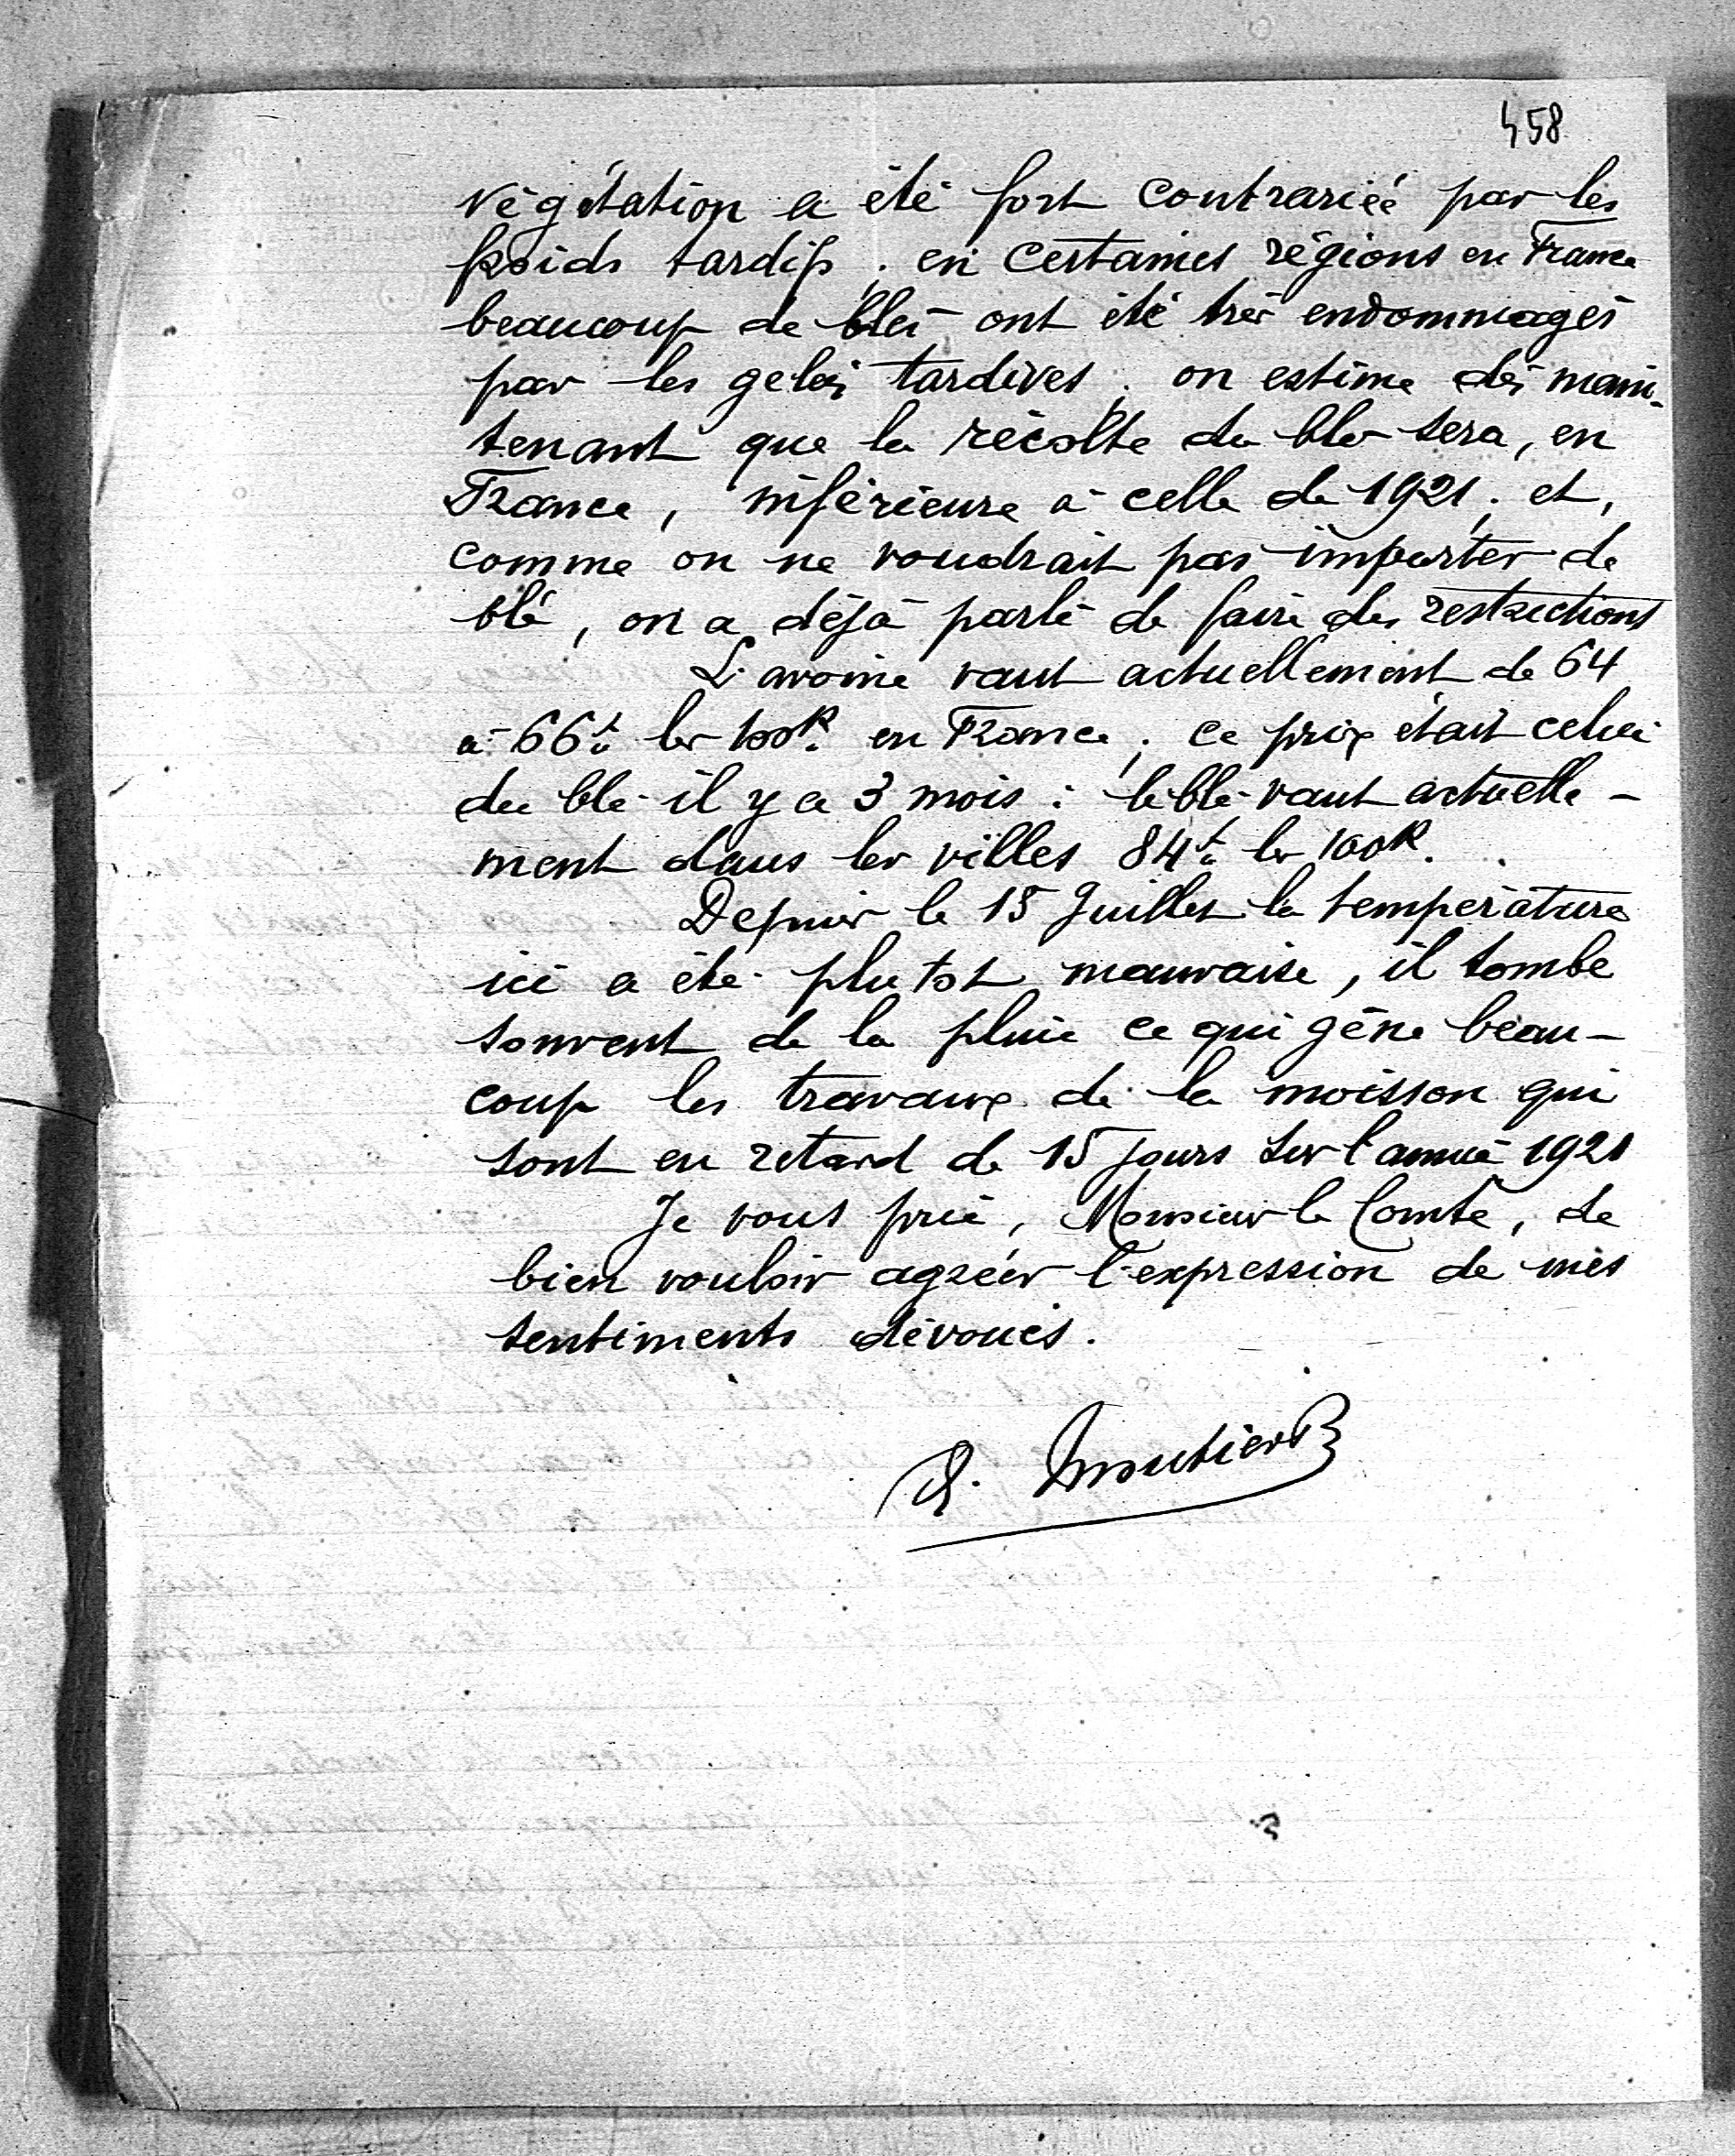 458
végétation a été fort contrariée par les
froids tardifs ; en certaines régions en France
beaucoup de blés ont été très endommagés
par les gelées tardives ; on estime dès main-
tenant que la récolte du blé sera, en
France, inférieure à celle de 1921 ; et,
comme on ne voudrait pas importer de
blé, on a déjà parlé de faire des restrictions
L'avoine vaut actuellement de 64
à 66f les 100K. en France ; ce prix était celui
du blé il y a 3 mois : le blé vaut actuelle-
ment dans les villes 84f les 100K.
Depuis le 15 Juillet la température
ici a été plutot mauvaise, il tombe
souvent de la pluie ce qui gêne beau-
coup les travaux de la moisson qui
sont en retard de 15 jours sur l'année 1921
Je vous prie, Monsieur le Comte, de
bien vouloir agréer l'expression de mes
sentiments dévoués.
Moutier